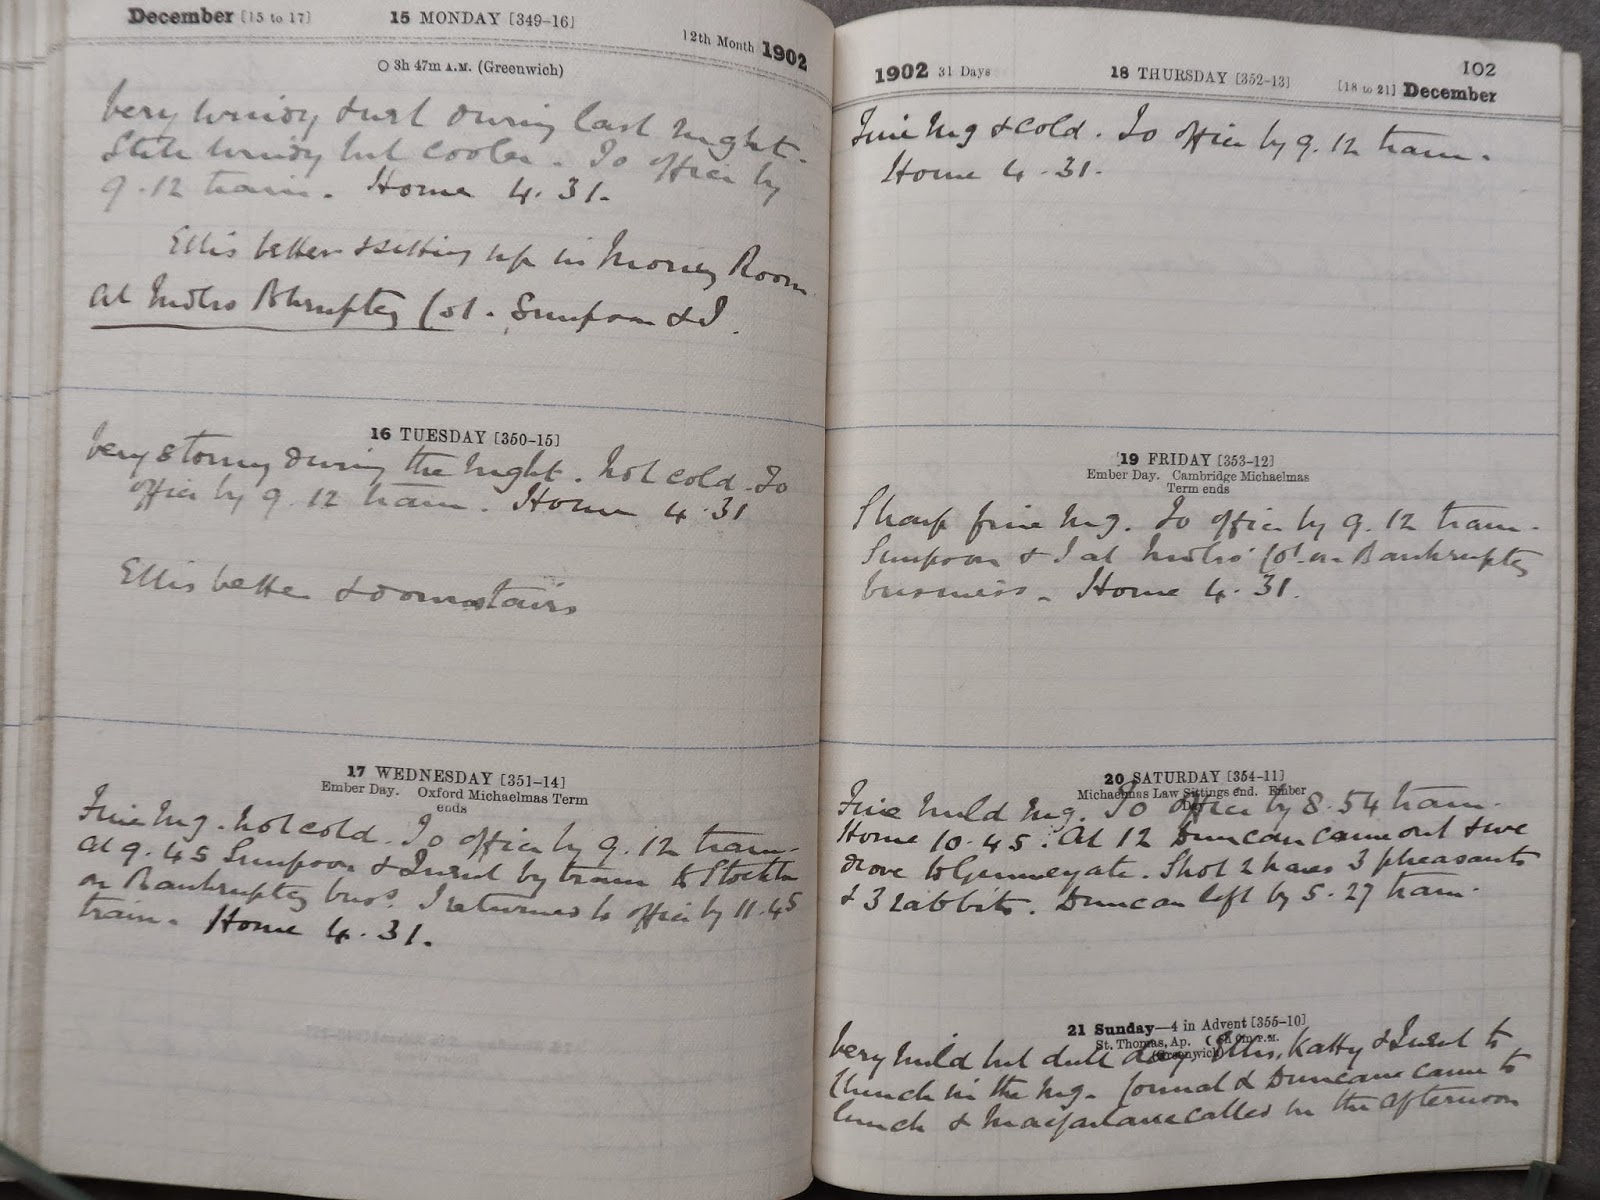 December [15 to 17]
15 MONDAY [349-16]
12th Month 1902
3h 47m A.M. (Greenwich)
Very windy & wet during last night.
Still windy but cooler. To office by
9.12 train. Home 4.31.
Ellis better & sitting up in Morning Room
at Bkruptcy Col. Simpson & I.
16 TUESDAY [350-15]
Very stormy during the night. Not cold. To
office by 9.12 train. Home 4.31
Ellis better & downstairs
17 WEDNESDAY [351-14]
Ember Day. Oxford Michaelmas Term
ends
Fine Mg. Not cold. To office by 9.12 train.
At 9.45 Simpson & I went by train to Stockton
on Bankruptcy bus. I returned to office by 11.45
train. Home 4.31.
102
1902 31 Days
18 THURSDAY [352-13]
[18 to 21] December
Fine Mg & cold. To office by 9.12 train.
Home 4.31.
19 FRIDAY [353-12]
Ember Day. Cambridge Michaelmas
Term ends
Sharp fine Mg. To office by 9.12 train.
Simpson & I at Col. on Bankruptcy
business. Home 4.31.
20 SATURDAY [354-11]
Michaelmas Law Sittings end. Ember
Day
Fine mild Mg. To office by 8.54 train.
Home 10.45. At 12 Duncan came out & we
drove to Gunnergate. Shot 2 hares 3 pheasants
& 3 rabbits. Duncan left by 5.27 train.
21 Sunday—4 in Advent [355-10]
St. Thomas, Ap. P.M.
(Greenwich)
Very mild but dull day. Ellis, Katty & I went to
Church in the Mg. & Duncan came to
lunch & Macfarlane called in the afternoon